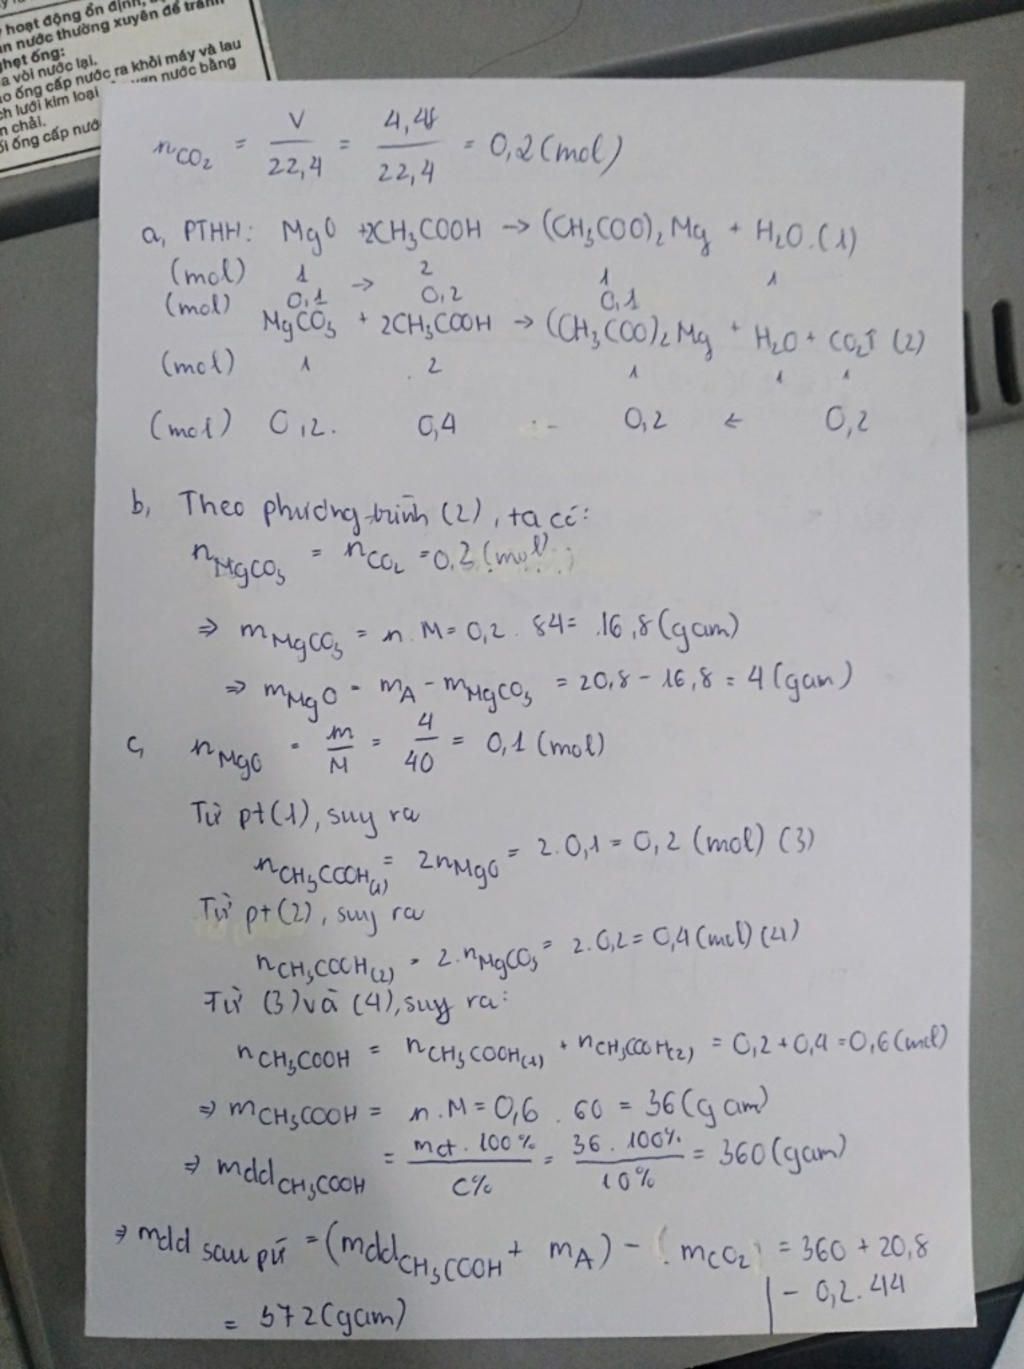 hoạt động ổn định,
nước thường xuyên để tránh
ghẹt ống:
a vòi nước lại.
ống cấp nước ra khỏi máy và lau
ch lưới kim loại van nước bằng
n chải.
ối ống cấp nướ
nCO₂ = V/22,4 = 4,48/22,4 = 0,2 (mol)
a, PTHH: MgO + 2CH₃COOH → (CH₃COO)₂Mg + H₂O. (1)
(mol) 1 2 1 1
(mol) 0,1 → 0,2 0,1
MgCO₃ + 2CH₃COOH → (CH₃COO)₂Mg + H₂O + CO₂↑ (2)
(mol) 1 2 1 1 1
(mol) 0,2. 0,4 0,2 ← 0,2
b, Theo phương trình (2), ta có:
nMgCO₃ = nCO₂ = 0,2 (mol)
⇒ mMgCO₃ = n.M = 0,2 . 84 = 16,8 (gam)
⇒ mMgO = mA - mMgCO₃ = 20,8 - 16,8 = 4 (gam)
c, nMgO = m/M = 4/40 = 0,1 (mol)
Từ pt (1), suy ra
nCH₃COOH(1) = 2nMgO = 2.0,1 = 0,2 (mol) (3)
Từ pt (2), suy ra
nCH₃COOH(2) = 2.nMgCO₃ = 2.0,2 = 0,4 (mol) (4)
Từ (3) và (4), suy ra:
nCH₃COOH = nCH₃COOH(1) + nCH₃COOH(2) = 0,2 + 0,4 = 0,6 (mol)
⇒ mCH₃COOH = n.M = 0,6 . 60 = 36 (gam)
⇒ mddCH₃COOH = mct . 100%/C% = 36 . 100%/10% = 360 (gam)
⇒ mdd sau pứ = (mddCH₃COOH + mA) - (mCO₂) = 360 + 20,8
- 0,2.44
= 372 (gam)